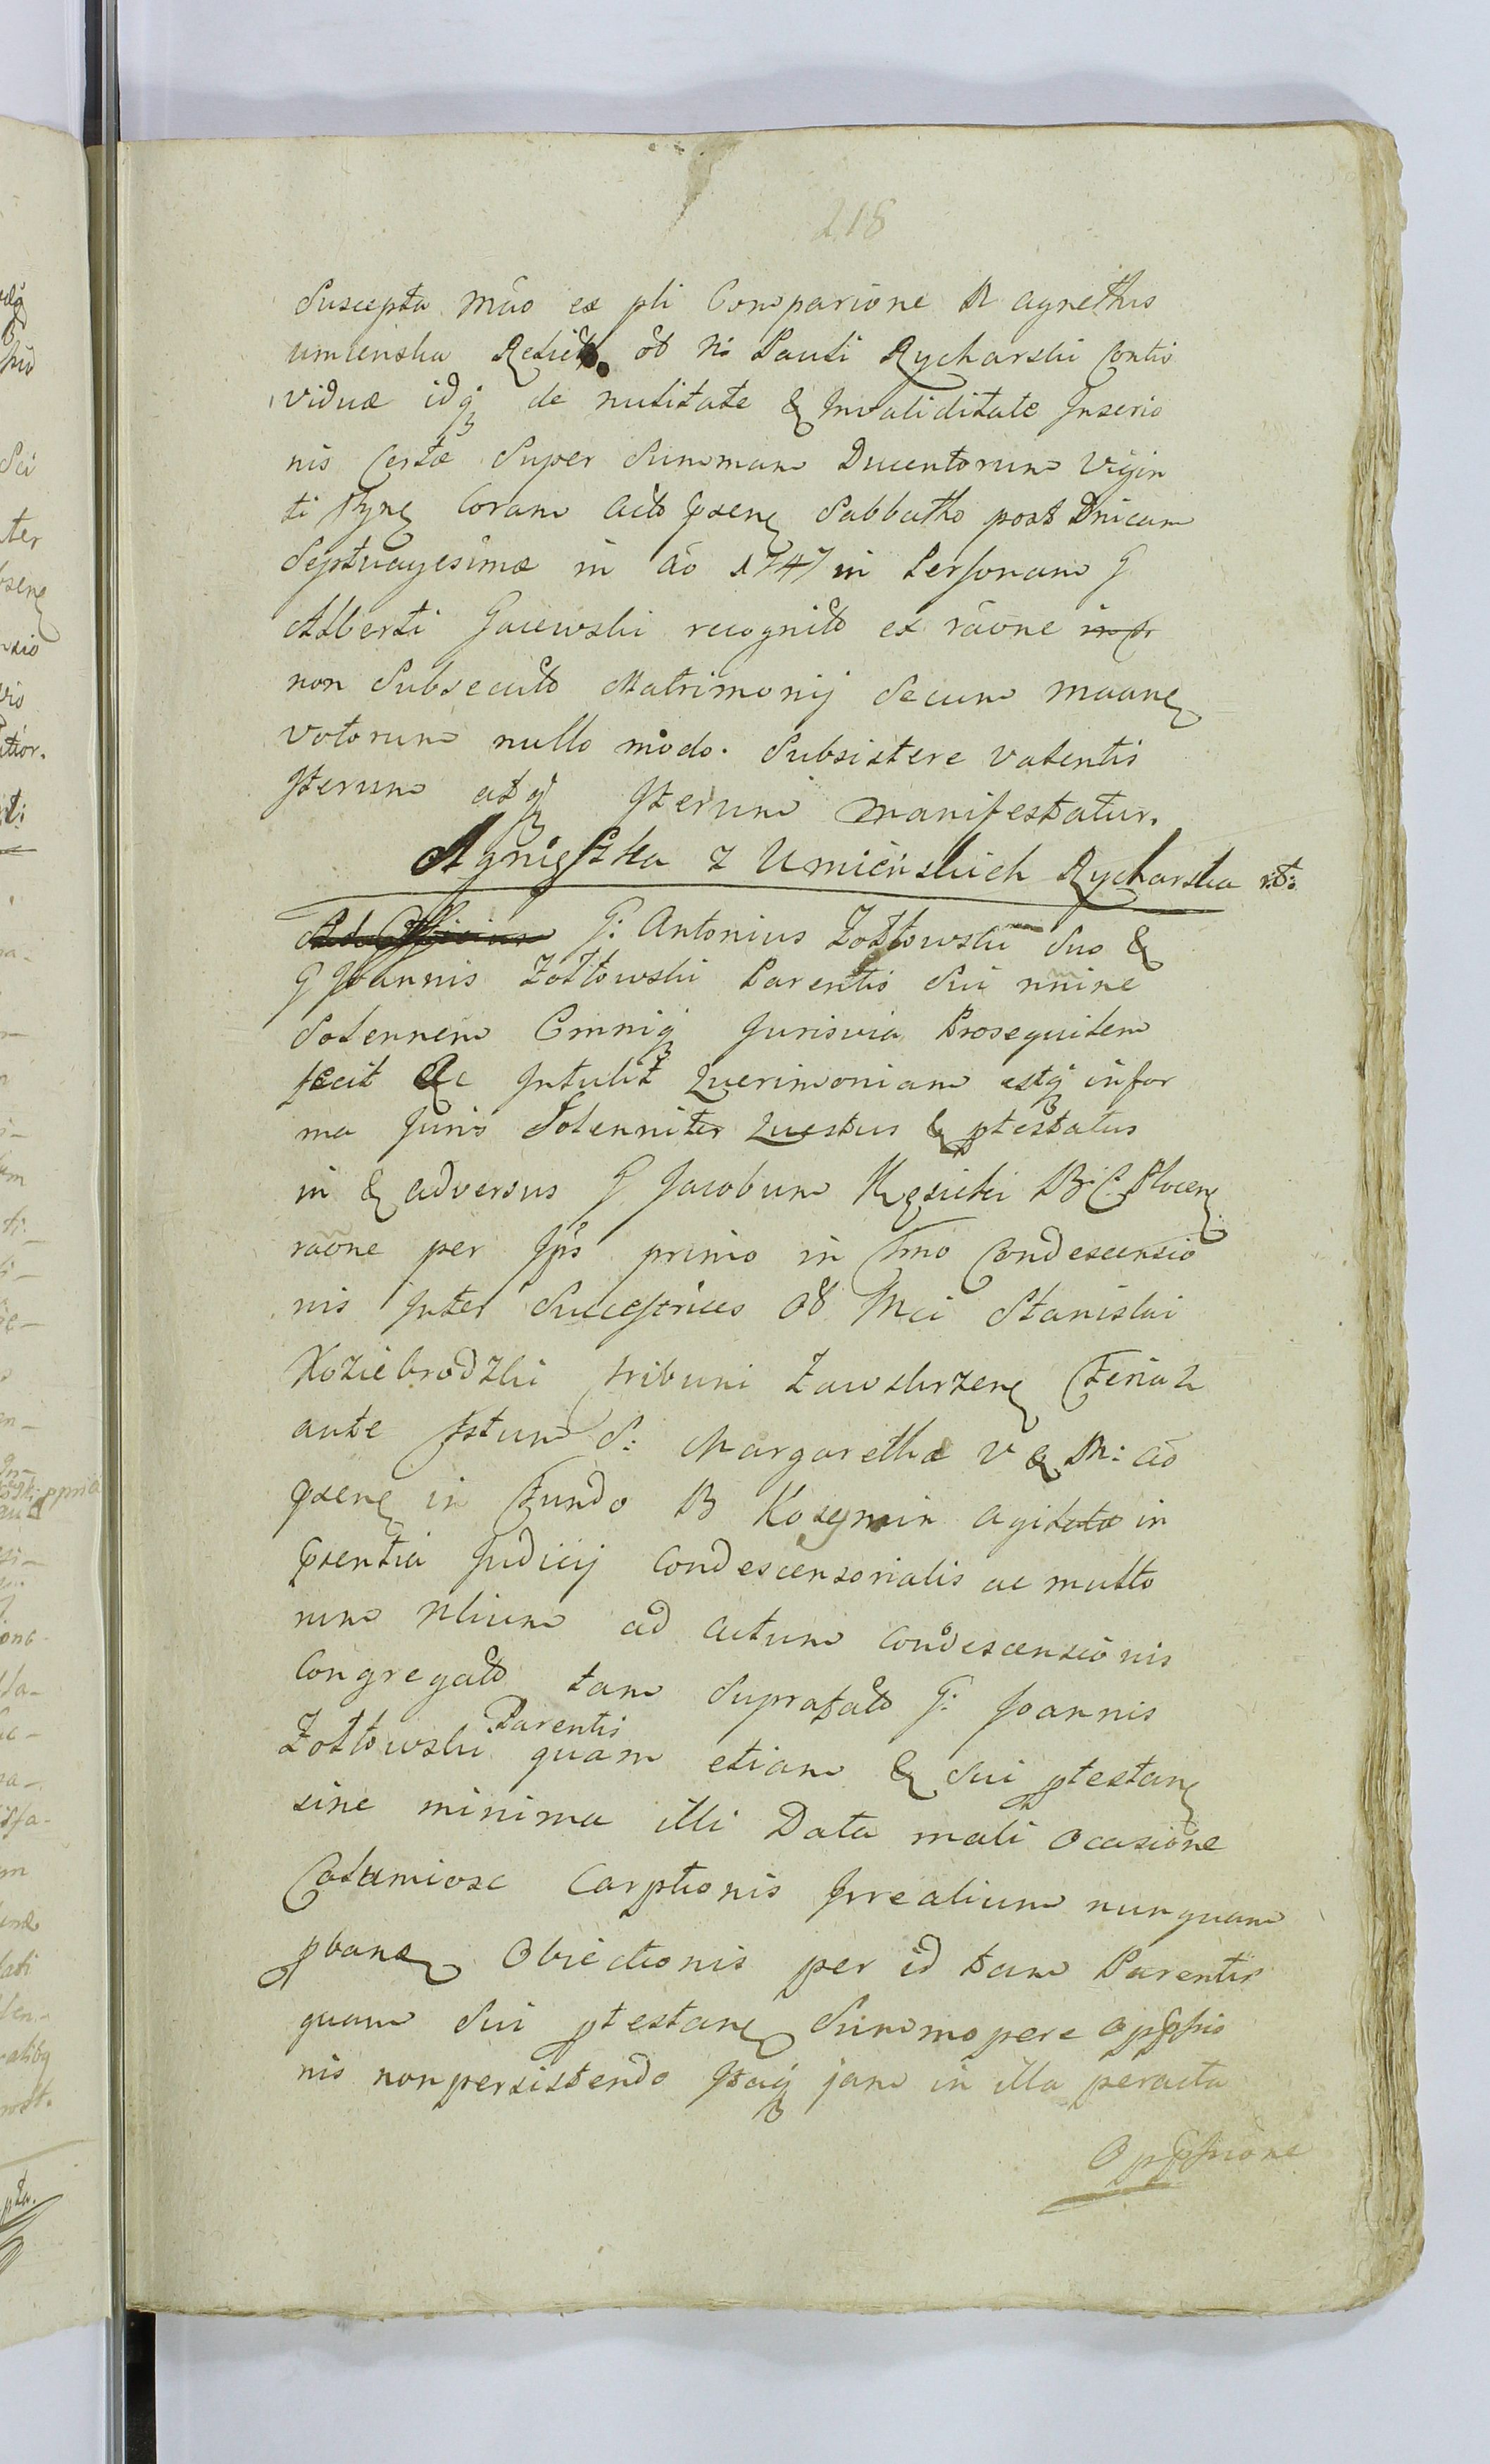 218
Suscepta mâo ex pti Comparione N agnethis
umienska Relictæ ob N: Pauli Rycharski Contis
viduæ idq de nulitate & Invaliditate Inscrio
nis Certæ Super Summam Ducentorum Vigin
ti flrn Coram Actis prsen Sabbatho post Dnicam
Septuagesimæ in ão 1747 in Personam G
Alberti Gaiewski recognitæ ex rãone
non Subsecuti Matrimonij Secum
votorum nullo modo. Subsistere valentis
Iterum atq Iterum manifestatur.
Agnięszka z Umieńskich Rycharska
Ad Officium G: Antonius Zołtowski Suo &
G Joannis Zołtowski Parentis Sui nnine
Solennem Omniq Jurisvia Prosequilem
fecit ac Intulit Querimoniam estq infor
ma Juris Solenniter Questus & ptestatus
in & adversus G Jacobum Kęsicki B: C: Plocen
raone per Ips primo in Tmo Condescensio
nis Inter Succestrices Ol Mci Stanislai
Koziebrodzki tribuni Zawskrzen Feria 2
ante fstum S: Margarethæ V & M: ão
prsen in Fundo B Kozymin agitatæ in
prsentia Judicij Condescensorialis ac multo
rum Nlium ad actum Condescensionis
Congregatæ tam Suprafati G: Joannis
Zołtowski Parentis quam etiam & Sui ptestan
sine minima illi Data mali Ocasione
Calumiose Carptionis Irrealium nunquam
pban Obiectionis per id tam Parentis
quam Sui ptestan Summopere Oppssio
nis non persistendo Itaq jam in illa peracta
Oppssione